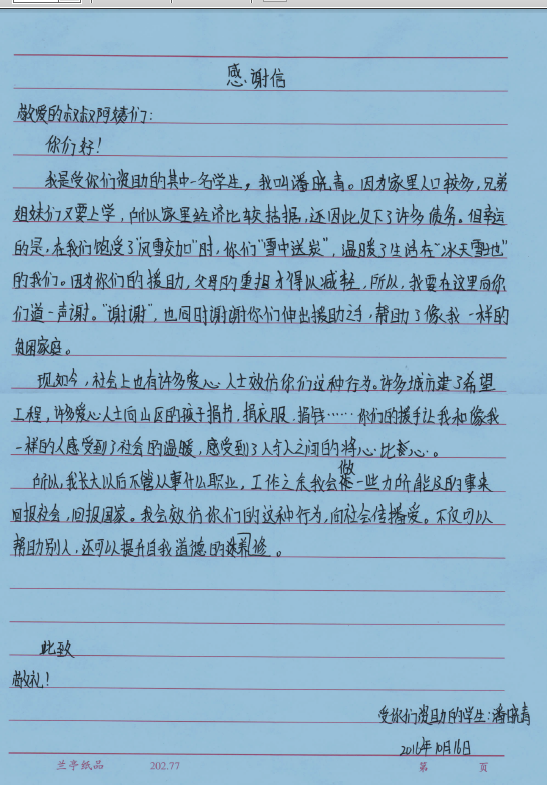 感谢信
敬爱的叔叔阿姨们：
你们好！
我是受你们资助的其中一名学生，我叫潘晓青。因为家里人口较多，兄弟
姐妹们又要上学，所以家里经济比较拮据，还因此欠下了许多债务。但幸运
的是，在我们饱受了"风雪交加"时，你们"雪中送炭"，温暖了生活在"冰天雪地"
的我们。因为你们的援助，父母的重担才得以减轻，所以，我要在这里向你
们道一声谢。"谢谢"，也同时谢谢你们伸出援助之手，帮助了像我一样的
贫困家庭。
现如今，社会上也有许多爱心人士效仿你们这种行为。许多城市建了希望
工程，许多爱心人士向山区的孩子捐书，捐衣服，捐钱……你们的援手让我和像我
一样的人感受到了社会的温暖，感受到了人与人之间的将心比心。
所以，我长大以后不管从事什么职业，工作之余我会做一些力所能及的事来
回报社会，回报国家。我会效仿你们的这种行为，向社会传播爱。不仅可以
帮助别人，还可以提升自我道德的修。
此致
敬礼！
受你们资助的学生：潘晓青
2016年10月16日
兰亭纸品 202.77 第 页